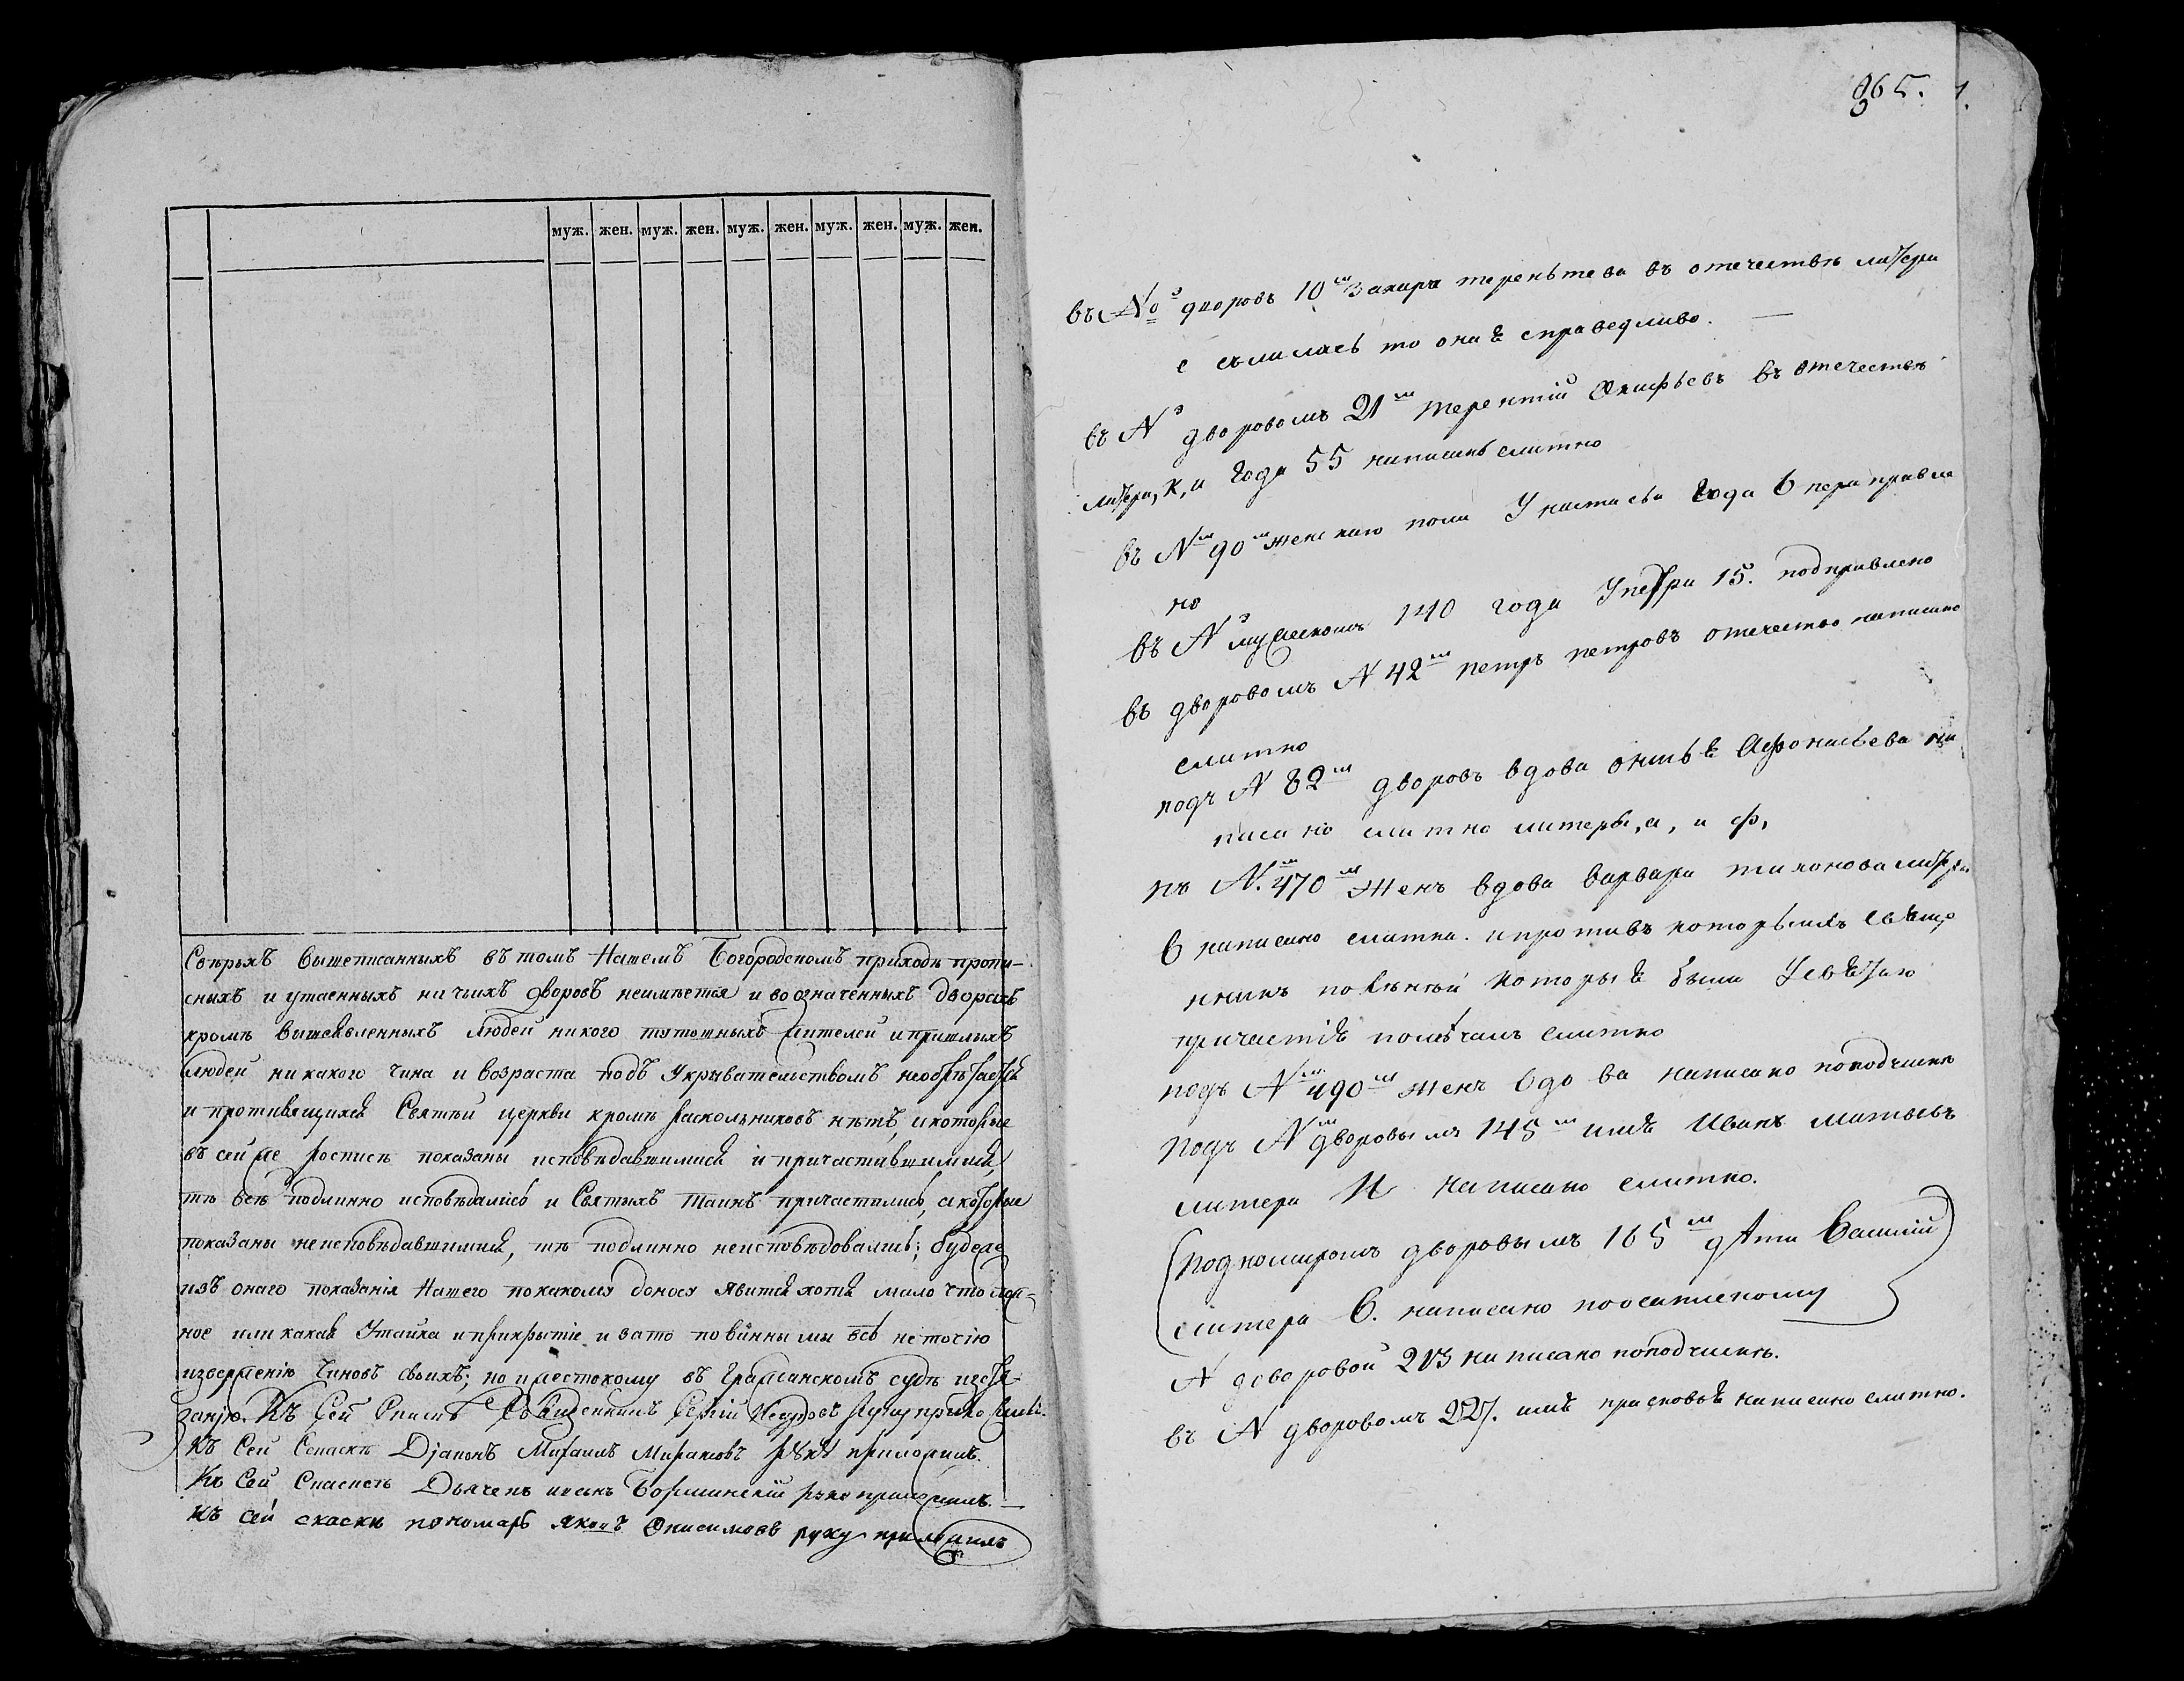 муж. жен. муж. жен. муж. жен. муж. жен. муж. жен.
Сверхъ вышеписанныхъ въ томъ Нашемъ Богородскомъ приходѣ пропи-
сныхъ и утаенныхъ ничьихъ дворовъ неимѣется и во означенныхъ дворахъ
кромѣ вышеявленныхъ людей никого тутошныхъ жителей и пришлыхъ
людей никакого чина и возраста подъ Укрывательствомъ необрѣтается
и противящихся Святѣй церкви кромѣ раскольниковъ нѣтъ, и которые
въ сей же росписи показаны исповѣдавшимися и причастившимися,
тѣ всѣ подлинно исповѣдались и Святыхъ Таинъ причастились, а которые
показаны неисповѣдавшимися, тѣ подлинно неисповѣдовались; буде же
изъ онаго показанія Нашего по какому доносу явится хотя мало что лож-
ное или какая Утайка и прикрытіе и за то повинны мы всѣ не точію
извержению Чиновъ своихъ; но и жестокому въ Гражданскомъ судѣ истя-
занію. Къ Сей Священникъ Сергій руку приложилъ.
Къ Сей Діаконъ Михаилъ руку приложилъ.
Къ Сей Дьячекъ руку приложилъ.
Къ сей скаски пономарь Яковъ Онисимовъ руку приложилъ
865. 1.
въ No дворовъ 10м Захара терентева въ отечествѣ литера
с слилась то онаѣ справедливо.
въ N дворовомъ 21м терентій въ отечествѣ
литера, к, и Года 55 написанъ слитно
въ Nм 90м женскаго пола У настасьи Года 6 перправле
но
въ N мужескомъ 140 года У петра 15. подправлено
въ дворовомъ N 42м петръ петровъ отечество написано
слитно
подъ N 82м дворовъ вдова Афонасьева на
писано слитно литеры, а, и ф,
въ N. 470м жен вдова варвара тихонова литера
в написано слитна. и противъ которымъ свящ
которыѣ были
причастіѣ слитно
подъ Nм 490м жен вдова написано поподчиске
подъ Nм дворовымъ 145м имѣ Иванъ
литера И написано слитно.
(под номиромъ дворовымъ 165м дѣти Василий
литера В. написано)
N дворовой 203 написано поподчиске.
въ N дворовомъ 227. имѣ прасковьѣ написано слитно.